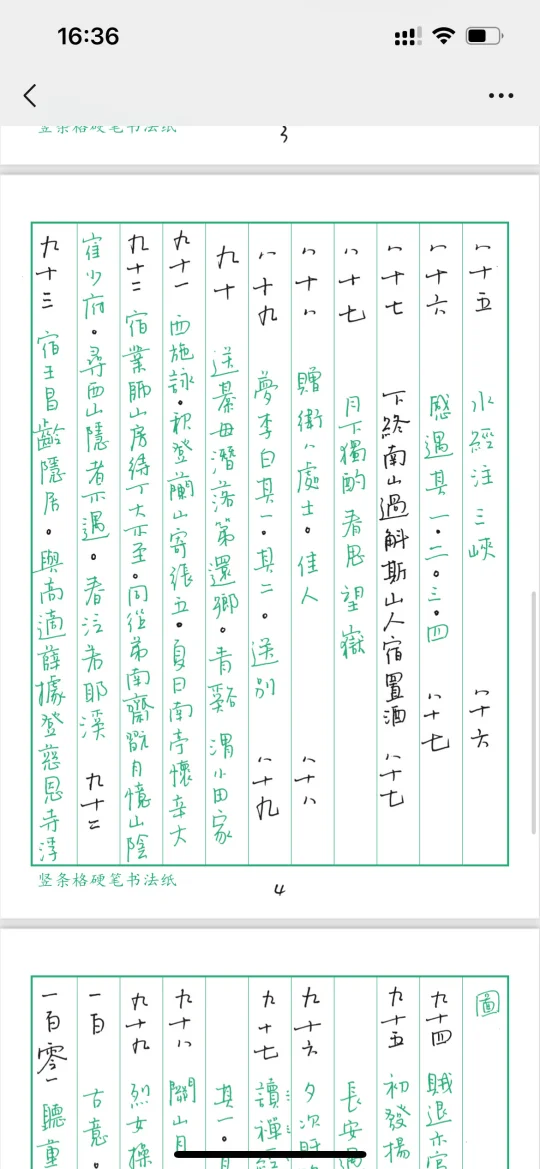 16:36
竖条格硬笔书法纸
3
八十五 水經注 三峽 八十六
八十六 感遇其一·二·三·四 八十七
八十七 下終南山過斛斯山人宿置酒 八十七
八十七 月下獨酌 春思 望嶽
八十八 贈衛八處士·佳人 八十八
八十九 夢李白其一·其二·送別 八十九
九十 送綦毋潛落第還鄉·青谿 渭小田家
九十一 西施詠·秋登蘭山寄張五·夏日南亭懷辛大
九十二 宿業師山房待丁大不至·同從弟南齋翫月憶山陰
崔少府·尋西山隱者不遇·春泛若耶溪 九十二
九十三 宿王昌齡隱居·與高適薛據登慈恩寺浮
竖条格硬笔书法纸
4
圖
九十四 賊退示官
九十五 初發揚
長安遇
九十六 夕次盱
九十七 讀禪經
其一·
九十八 關山月
九十九 烈女操
一百 古意·
一百零一 聽董